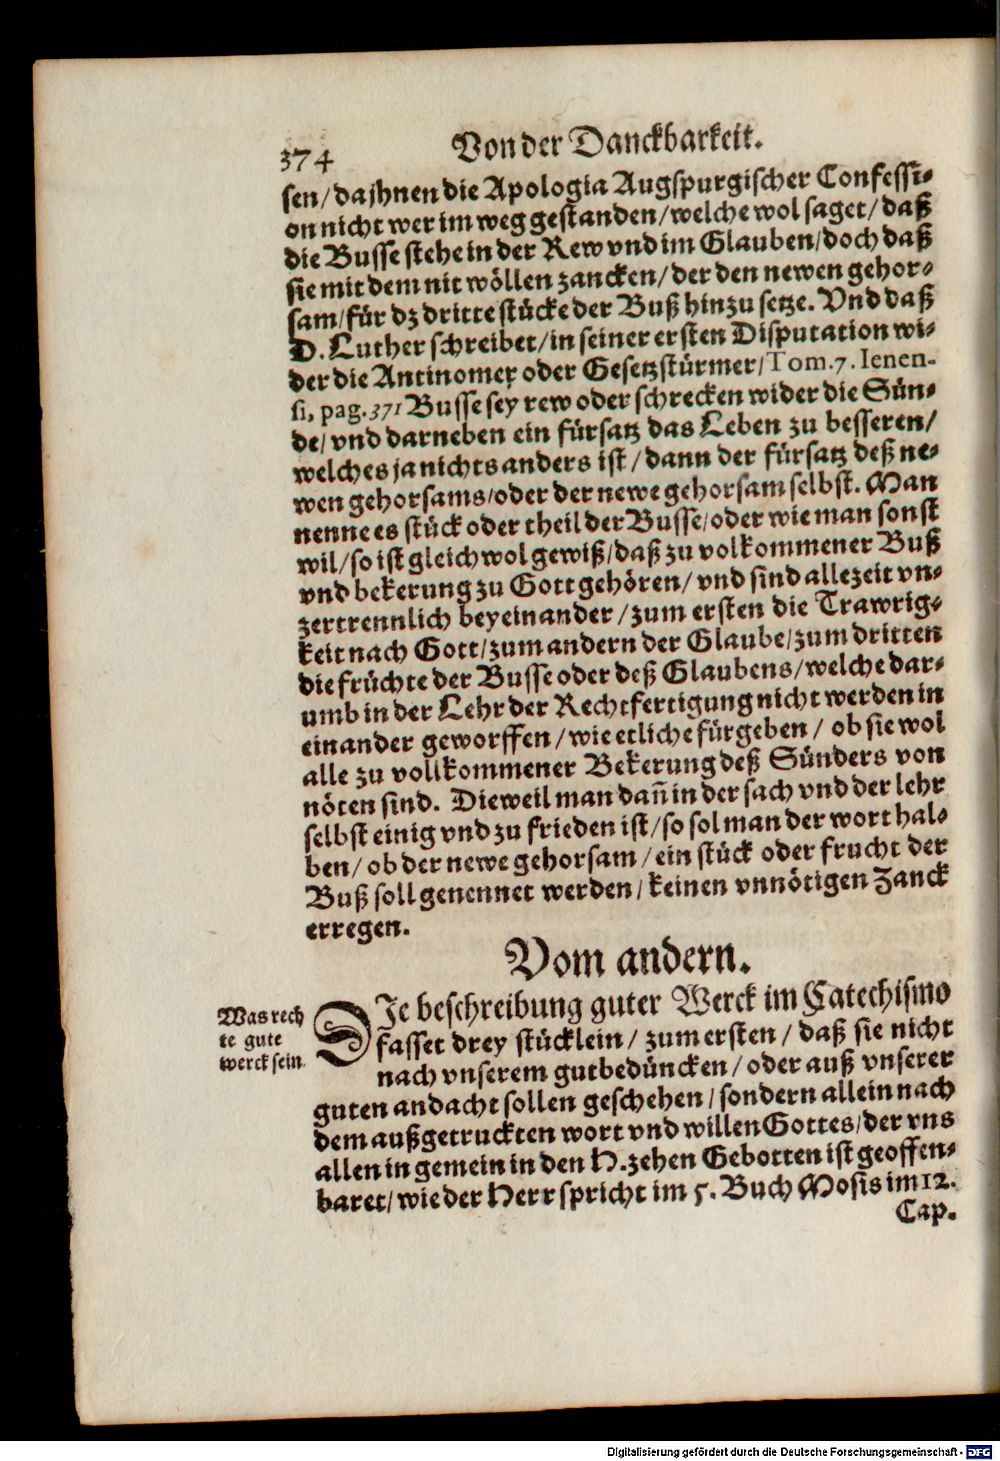 374 Von der Danckbarkeit.
sen/ da jhnen die Apologia Augspurgischer Confessi-
on nicht wer im weg gestanden/ welche wol saget/ daß
die Busse stehe in der Rew vnd im Glauben/ doch daß
sie mit dem nit wöllen zancken/ der den newen gehor-
sam/ für dz dritte stücke der Buß hinzu setze. Vnd daß
D. Luther schreibet/ in seiner ersten Disputation wi-
der die Antinomer oder Gesetzstürmer/ Tom. 7. Ienen-
si, pag. 371 Busse sey rew oder schrecken wider die Sün-
de/ vnd darneben ein fürsatz das Leben zu besseren/
welches ja nichts anders ist/ dann der fürsatz deß ne-
wen gehorsams/ oder der newe gehorsam selbst. Man
nenne es stück oder theil der Busse/ oder wie man sonst
wil/ so ist gleichwol gewiß/ daß zu volkommener Buß
vnd bekerung zu Gott gehören/ vnd sind allezeit vn-
zertrennlich beyeinander/ zum ersten die Trawrig-
keit nach Gott/ zum andern der Glaube/ zum dritten
die früchte der Busse oder deß Glaubens/ welche dar-
umb in der Lehr der Rechtfertigung nicht werden in
einander geworffen/ wie etliche fürgeben/ ob sie wol
alle zu vollkommener Bekerung deß Sünders von
nöten sind. Dieweil man dañ in der sach vnd der lehr
selbst einig vnd zu frieden ist/ so sol man der wort hal-
ben/ ob der newe gehorsam/ ein stück oder frucht der
Buß soll genennet werden/ keinen vnnötigen Zanck
erregen.
Vom andern.
Was rech
te gute
werck sein.
DIe beschreibung guter Werck im Catechismo
fasset drey stücklein/ zum ersten/ daß sie nicht
nach vnserem gutbedüncken/ oder auß vnserer
guten andacht sollen geschehen/ sondern allein nach
dem außgetruckten wort vnd willen Gottes/ der vns
allen in gemein in den H. zehen Gebotten ist geoffen-
baret/ wie der Herr spricht im 5. Buch Mosis im 12.
Cap.
Digitalisierung gefördert durch die Deutsche Forschungsgemeinschaft - DFG